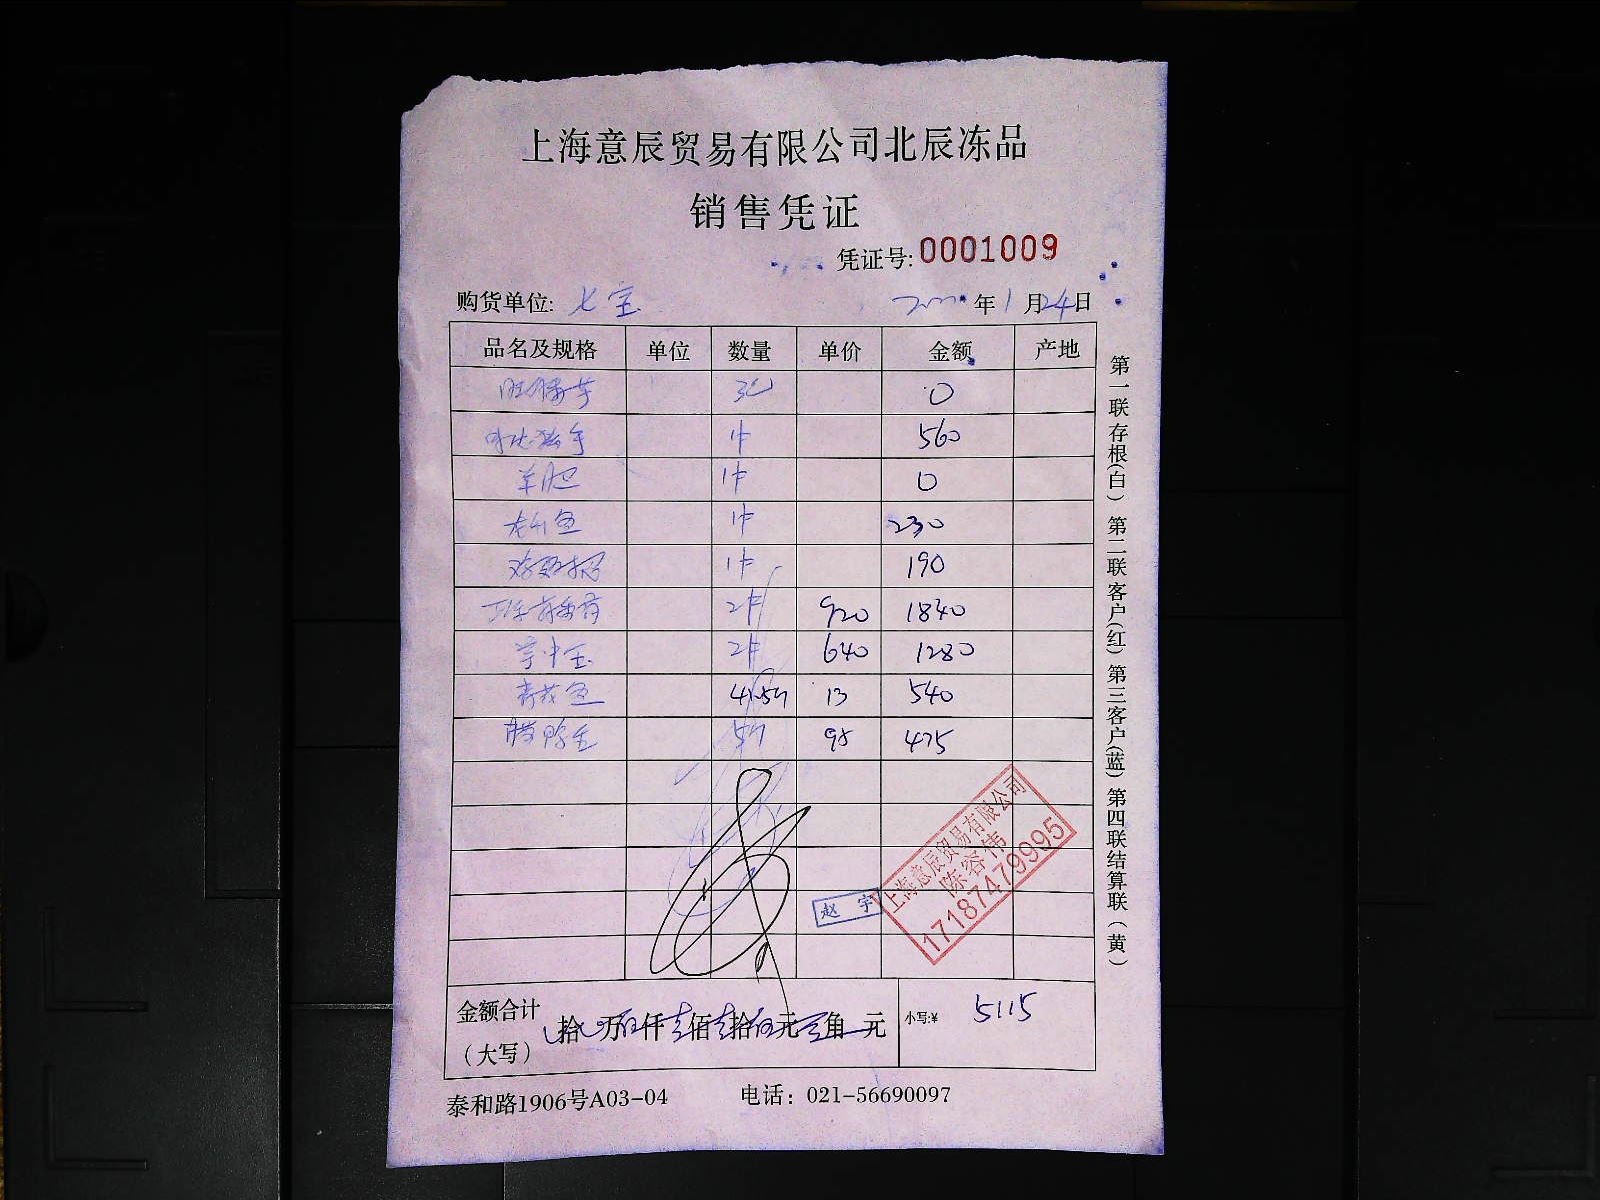 上海意辰贸易有限公司北辰冻品
销售凭证
凭证号:0001009
购货单位: 七宝 年1月24日
品名及规格 单位 数量 单价 金额 产地
0
1件 560
羊肚 1件 0
1件 230
1件 190
2件 920 1840
2件 640 1280
青花鱼 41.5斤 13 540
腊鸭 5斤 95 475
赵宇
上海意辰贸易有限公司
陈容伟
17187479995
金额合计
(大写)
拾 万伍仟壹佰壹拾伍元 角 元 小写:¥ 5115
泰和路1906号A03-04 电话: 021-56690097
第一联存根(白) 第二联客户(红) 第三客户(蓝) 第四联结算联(黄)